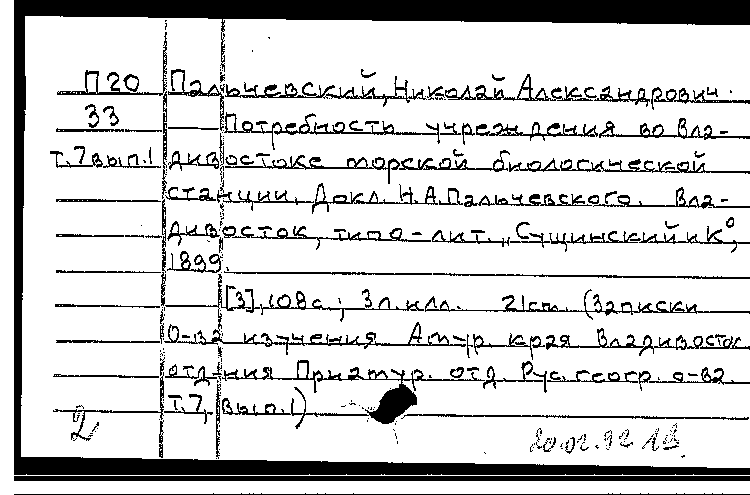 П20 Пальчевский, Николай Александрович.
33 Потребность учреждения во Вла-
т.7 вып.1 дивостоке морской биологической
станции, Докл. Н.А.Пальчевского. Вла-
дивосток, типо-лит. „Сущинский и К°,
1899.
[3], 108 с.; 3 л. илл. 21 см. (Записки
О-ва изучения Амур. края Владивосток.
отд-ния Приамур. отд. Рус. геогр. о-ва.
Т.7, вып.1).
2